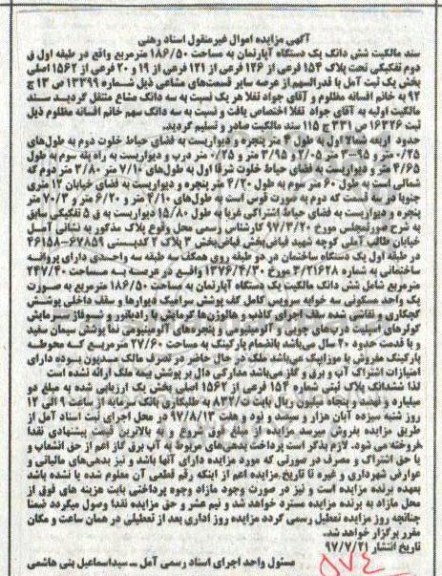 آگهی مزایده اموال غیرمنقول اسناد رهنی
سند مالکیت شش دانگ یک دستگاه آپارتمان به مساحت ۱۸۶/۵۰ مترمربع واقع در طبقه اول ق
دوم تفکیکی تحت پلاک ۱۵۴ فرعی از ۱۲۶ فرعی از ۱۲۱ فرعی از ۱۹ و ۲۰ فرعی از ۱۵۶۲ اصلی
بخش یک ثبت آمل با قدرالسهم از عرصه سایر قسمت‌های مشاعی ذیل شماره ۱۳۳۹۹ ص ۱۳ ج
۹۲ به خانم افسانه مظلوم و آقای جواد تقلا هر یک نسبت به سه دانگ مشاع منتقل گردید سند
مالکیت اولیه به آقای جواد تقلا اختصاص یافت و نسبت به سه دانگ سهم خانم افسانه مظلوم ذیل
ثبت ۱۶۳۲۶ ص ۳۳۱ ج ۱۱۵ سند مالکیت صادر و تسلیم گردید.
حدود اربعه شمالا اول به طول ۴ متر پنجره و دیواریست به فضای حیاط خلوت دوم به طول‌های
۰/۲۵ متر و ۰/۹۵ متر ۲/۰۵ و ۳/۹۵ متر و ۰/۲۵ متر درب و دیواریست به راه پله سوم به طول
۴/۶۵ متر و دیواریست به فضای حیاط خلوت شرقا اول به طول‌های ۷/۱۰ متر ۳/۸۰ متر دوم که
شمالی است به طول ۶۰ متر سوم به طول ۴/۲۰ متر پنجره و دیواریست به فضای خیابان ۱۲ متری
جنوبا در سه قسمت که دوم به صورت قوس است به طول‌های ۴/۱۰ متر و ۶/۲۰ متر و ۷۰/۳ متر
پنجره و دیواریست به فضای حیاط اشتراکی غربا به طول ۱۵/۸۰ دیواریست به ق ۵ تفکیکی سابق
به شرح صورتمجلس مورخ ۹۷/۳/۲۰ کارشناس رسمی محل وقوع پلاک مذکور به نشانی آمل
خیابان طالب آملی کوچه شهید فیاض‌بخش فیاض‌بخش ۳ پلاک ۲ کدپستی ۶۷۸۵۹-۴۶۱۵۸
در طبقه اول یک دستگاه ساختمان در دو طبقه روی همکف سه طبقه سه واحدی دارای پروانه
ساختمانی به شماره ۳/۲۱۶۲۸ مورخ ۱۳۷۶/۴/۳۰ واقع در عرصه به مساحت ۲۴۷/۴۰
مترمربع شامل شش دانگ مالکیت یک دستگاه آپارتمان به مساحت ۱۸۶/۵۰ مترمربع به صورت
یک واحد مسکونی سه خوابه سرویس کامل کف پوشش سرامیک دیوارها و سقف داخلی پوشش
گچکاری و نقاشی شده سقف اجرای کاذب و هالوژن‌ها گرمایش با رادیاتور و شوفاژ سرمایش
کولرهای اسپلیت درب‌های چوبی و آلومینیومی و پنجره‌های آلومینیومی نما پوشش سیمان سفید
و با قدمت حدود ۲۰ سال می‌باشد بانضمام پارکینگ به مساحت ۲۷/۶۰ مترمربع که محوطه
پارکینگ مفروش با موزاییک می‌باشد ملک در حال حاضر در تصرف مالک مدیون بوده دارای
امتیازات اشتراک آب و برق و گاز می‌باشد مدارکی دال بر پوشش بیمه ملک ارائه نشده است
لذا ششدانگ پلاک ثبتی شماره ۱۵۴ فرعی از ۱۵۶۲ اصلی بخش یک ارزیابی شده به مبلغ دو
میلیارد و نهصد و پنجاه میلیون ریال بابت ث/۸۳۲ به طلبکاری بانک سرمایه از ساعت ۹ الی ۱۲
روز شنبه سیزده آبان هزار و سیصد و نود و هفت ۹۷/۸/۱۳ در محل اجرای ثبت اسناد آمل از
طریق مزایده بفروش میرسد مزایده از مبلغ فوق شروع و به بالاترین قیمت پیشنهادی نقدا
فروخته می شود. لازم بذکر است پرداخت بدهی‌های مربوط به آب برق گاز اعم از حق انشعاب و
یا حق اشتراک و مصرف در صورتی که مورد مزایده دارای آنها باشد و نیز بدهی‌های مالیاتی و
عوارض شهرداری و غیره تا تاریخ مزایده اعم از اینکه رقم قطعی آن معلوم شده یا نشده باشد
بعهده برنده مزایده است و نیز در صورت وجود مازاد وجوه پرداختی بابت هزینه های فوق از
محل مازاد به برنده مزایده مسترد خواهد شد و نیم عشر و حق مزایده نقدا وصول میگردد ضمنا
چنانچه روز مزایده تعطیل رسمی گردد مزایده روز اداری بعد از تعطیلی در همان ساعت و مکان
مقرر برگزار خواهد شد.
تاریخ انتشار ۹۷/۷/۲۱
مسئول واحد اجرای اسناد رسمی آمل – سیداسماعیل بنی هاشمی
۵۷۴